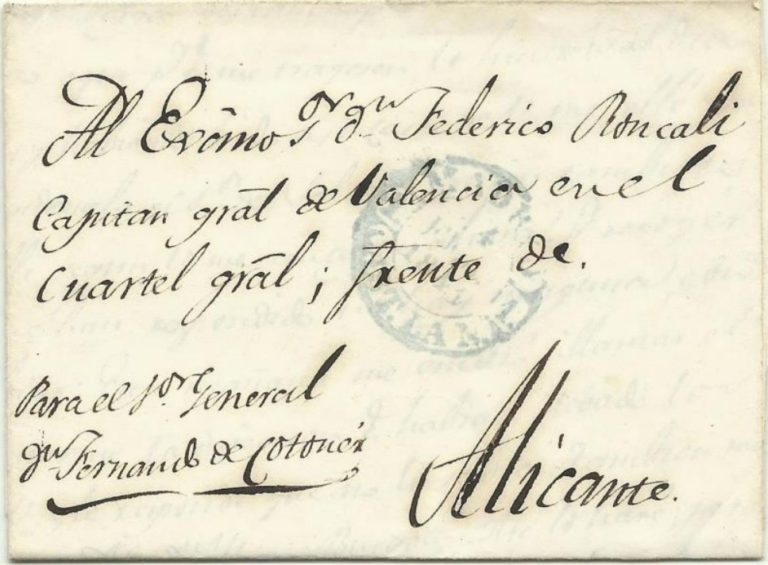 Al Excmo Sr. dn Federico Roncali
Capitan gral de Valencia en el
Cuartel gral; frente de.
Alicante.
Para el Sor. General
dn Fernando de Cotoner